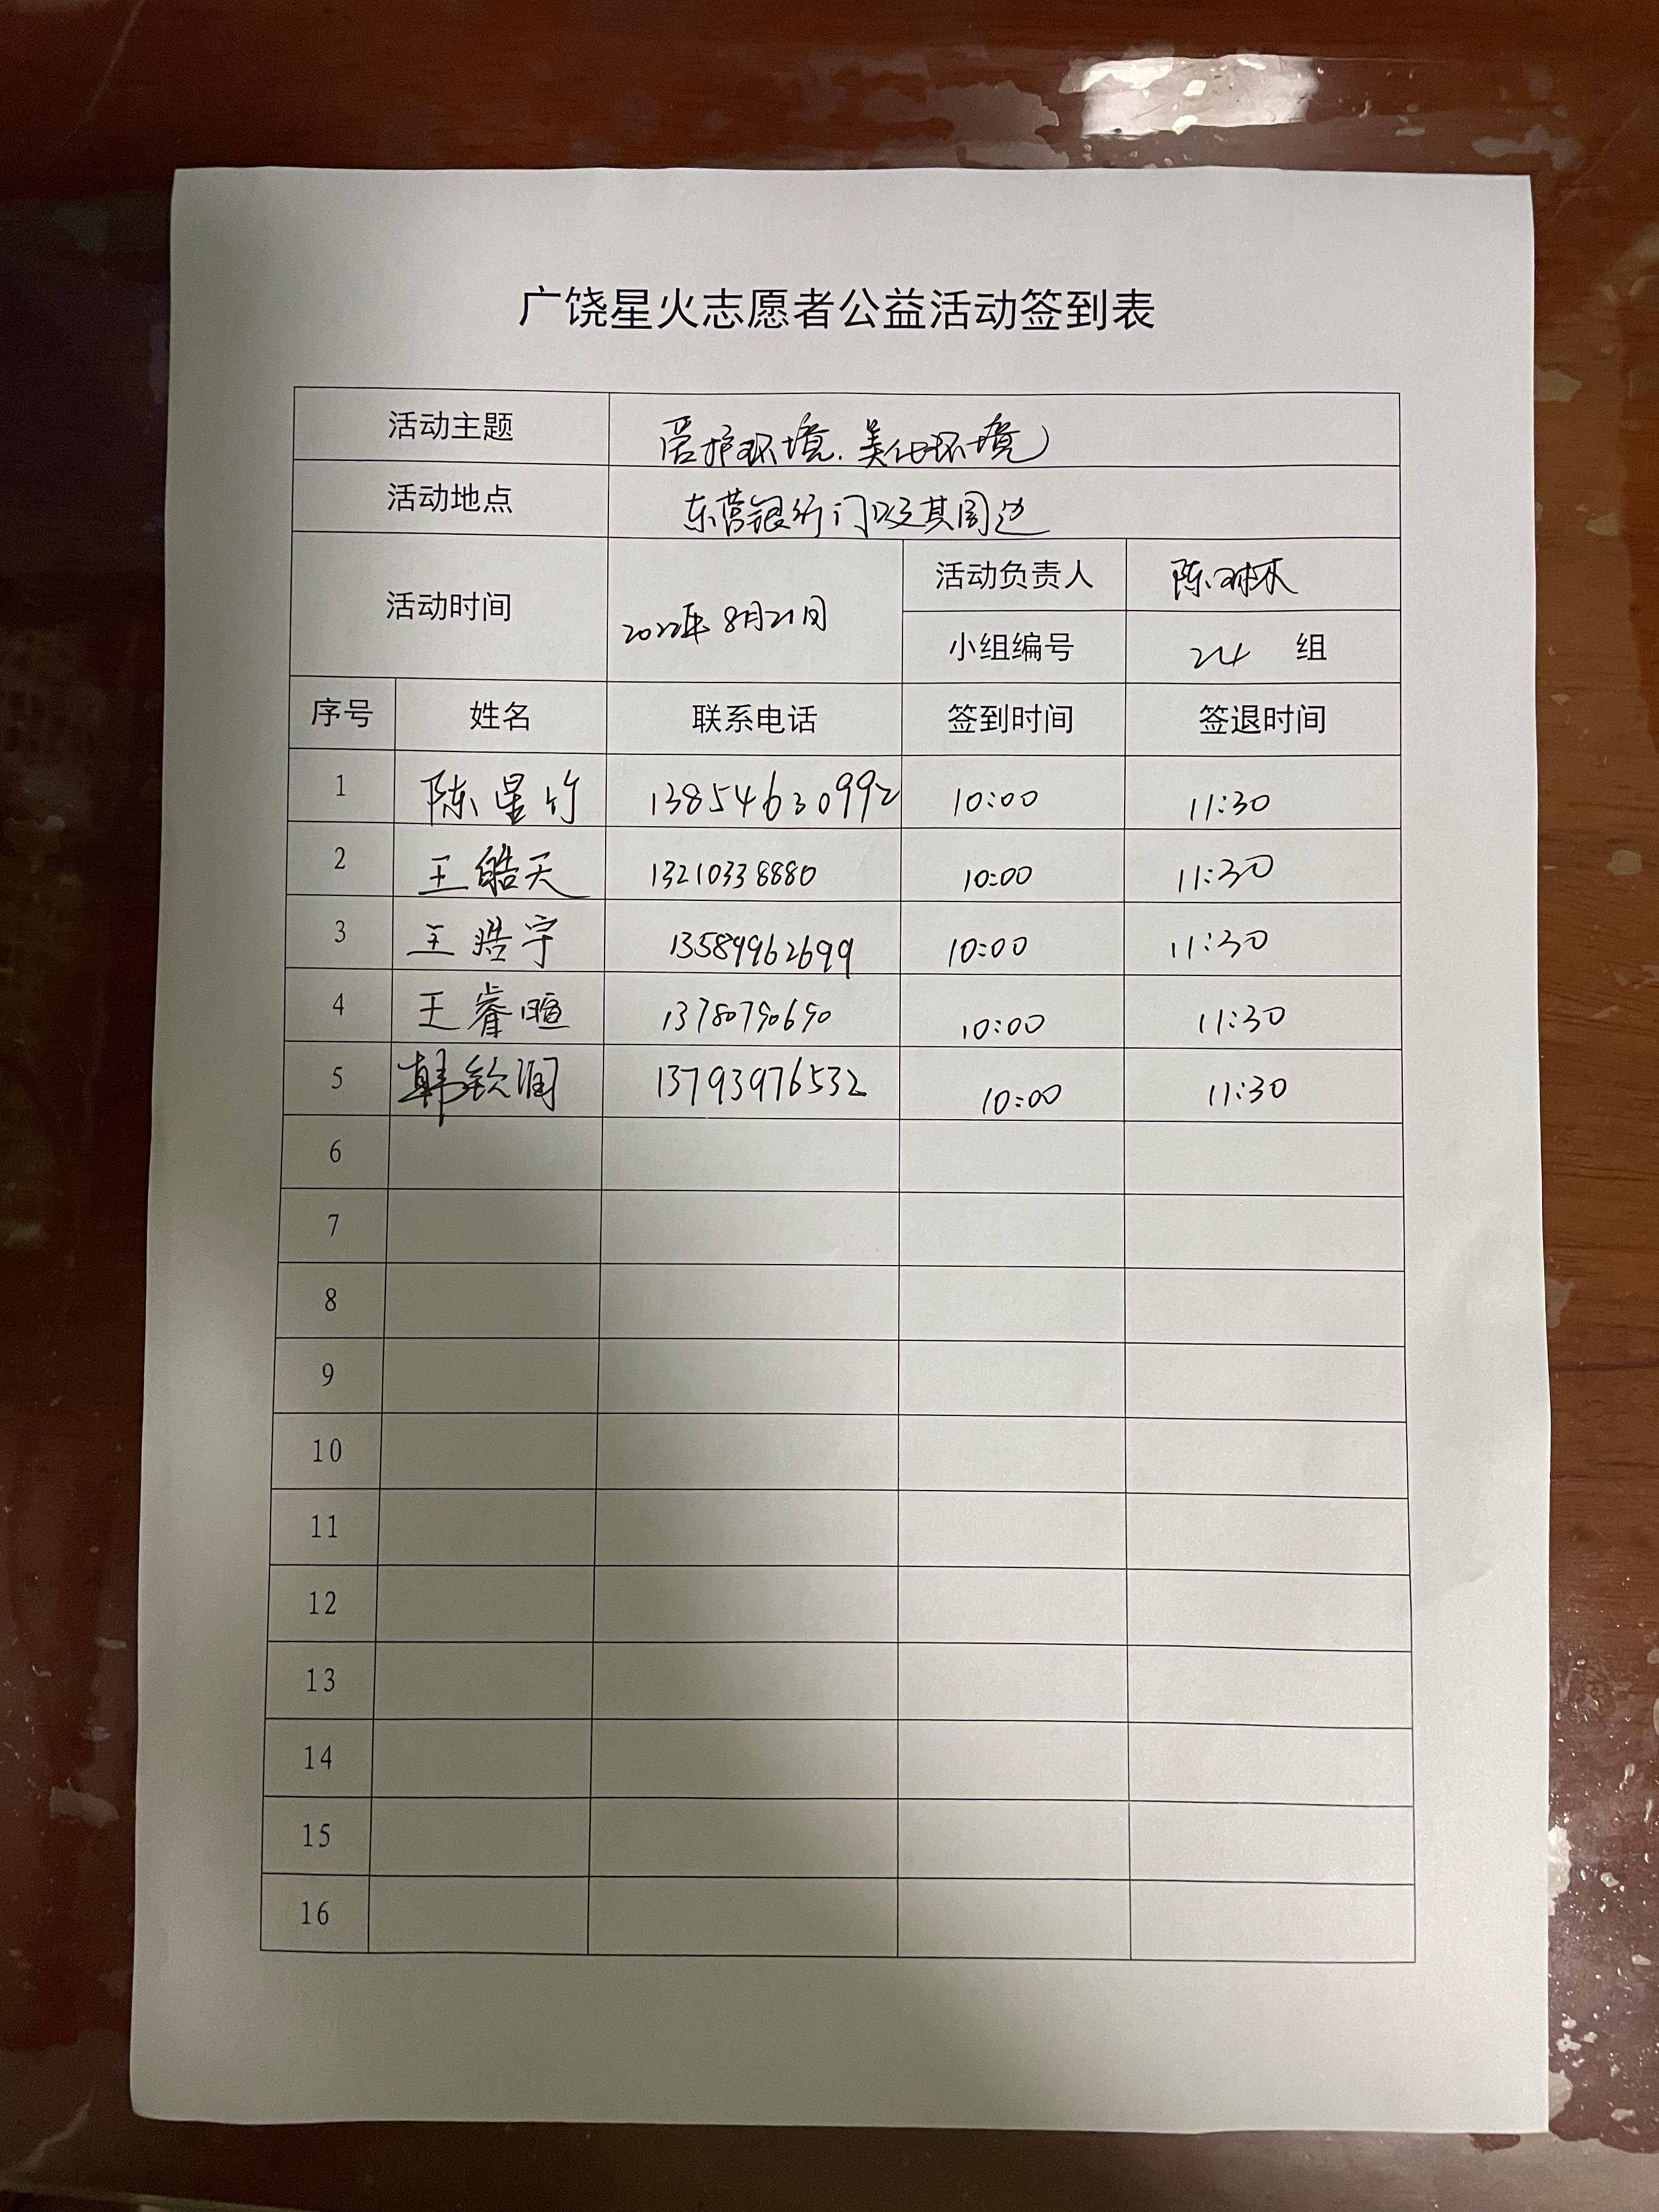 广饶星火志愿者公益活动签到表
活动主题 爱护环境.美化环境
活动地点 东营银行门以及其周边
活动时间 2022年8月21日 活动负责人 陈
小组编号 24 组
序号 姓名 联系电话 签到时间 签退时间
1 陈星竹 13854630992 10:00 11:30
2 王皓天 13210338880 10:00 11:30
3 王浩宇 13589962699 10:00 11:30
4 王睿暄 13780790690 10:00 11:30
5 韩钦润 13793976532 10:00 11:30
6
7
8
9
10
11
12
13
14
15
16